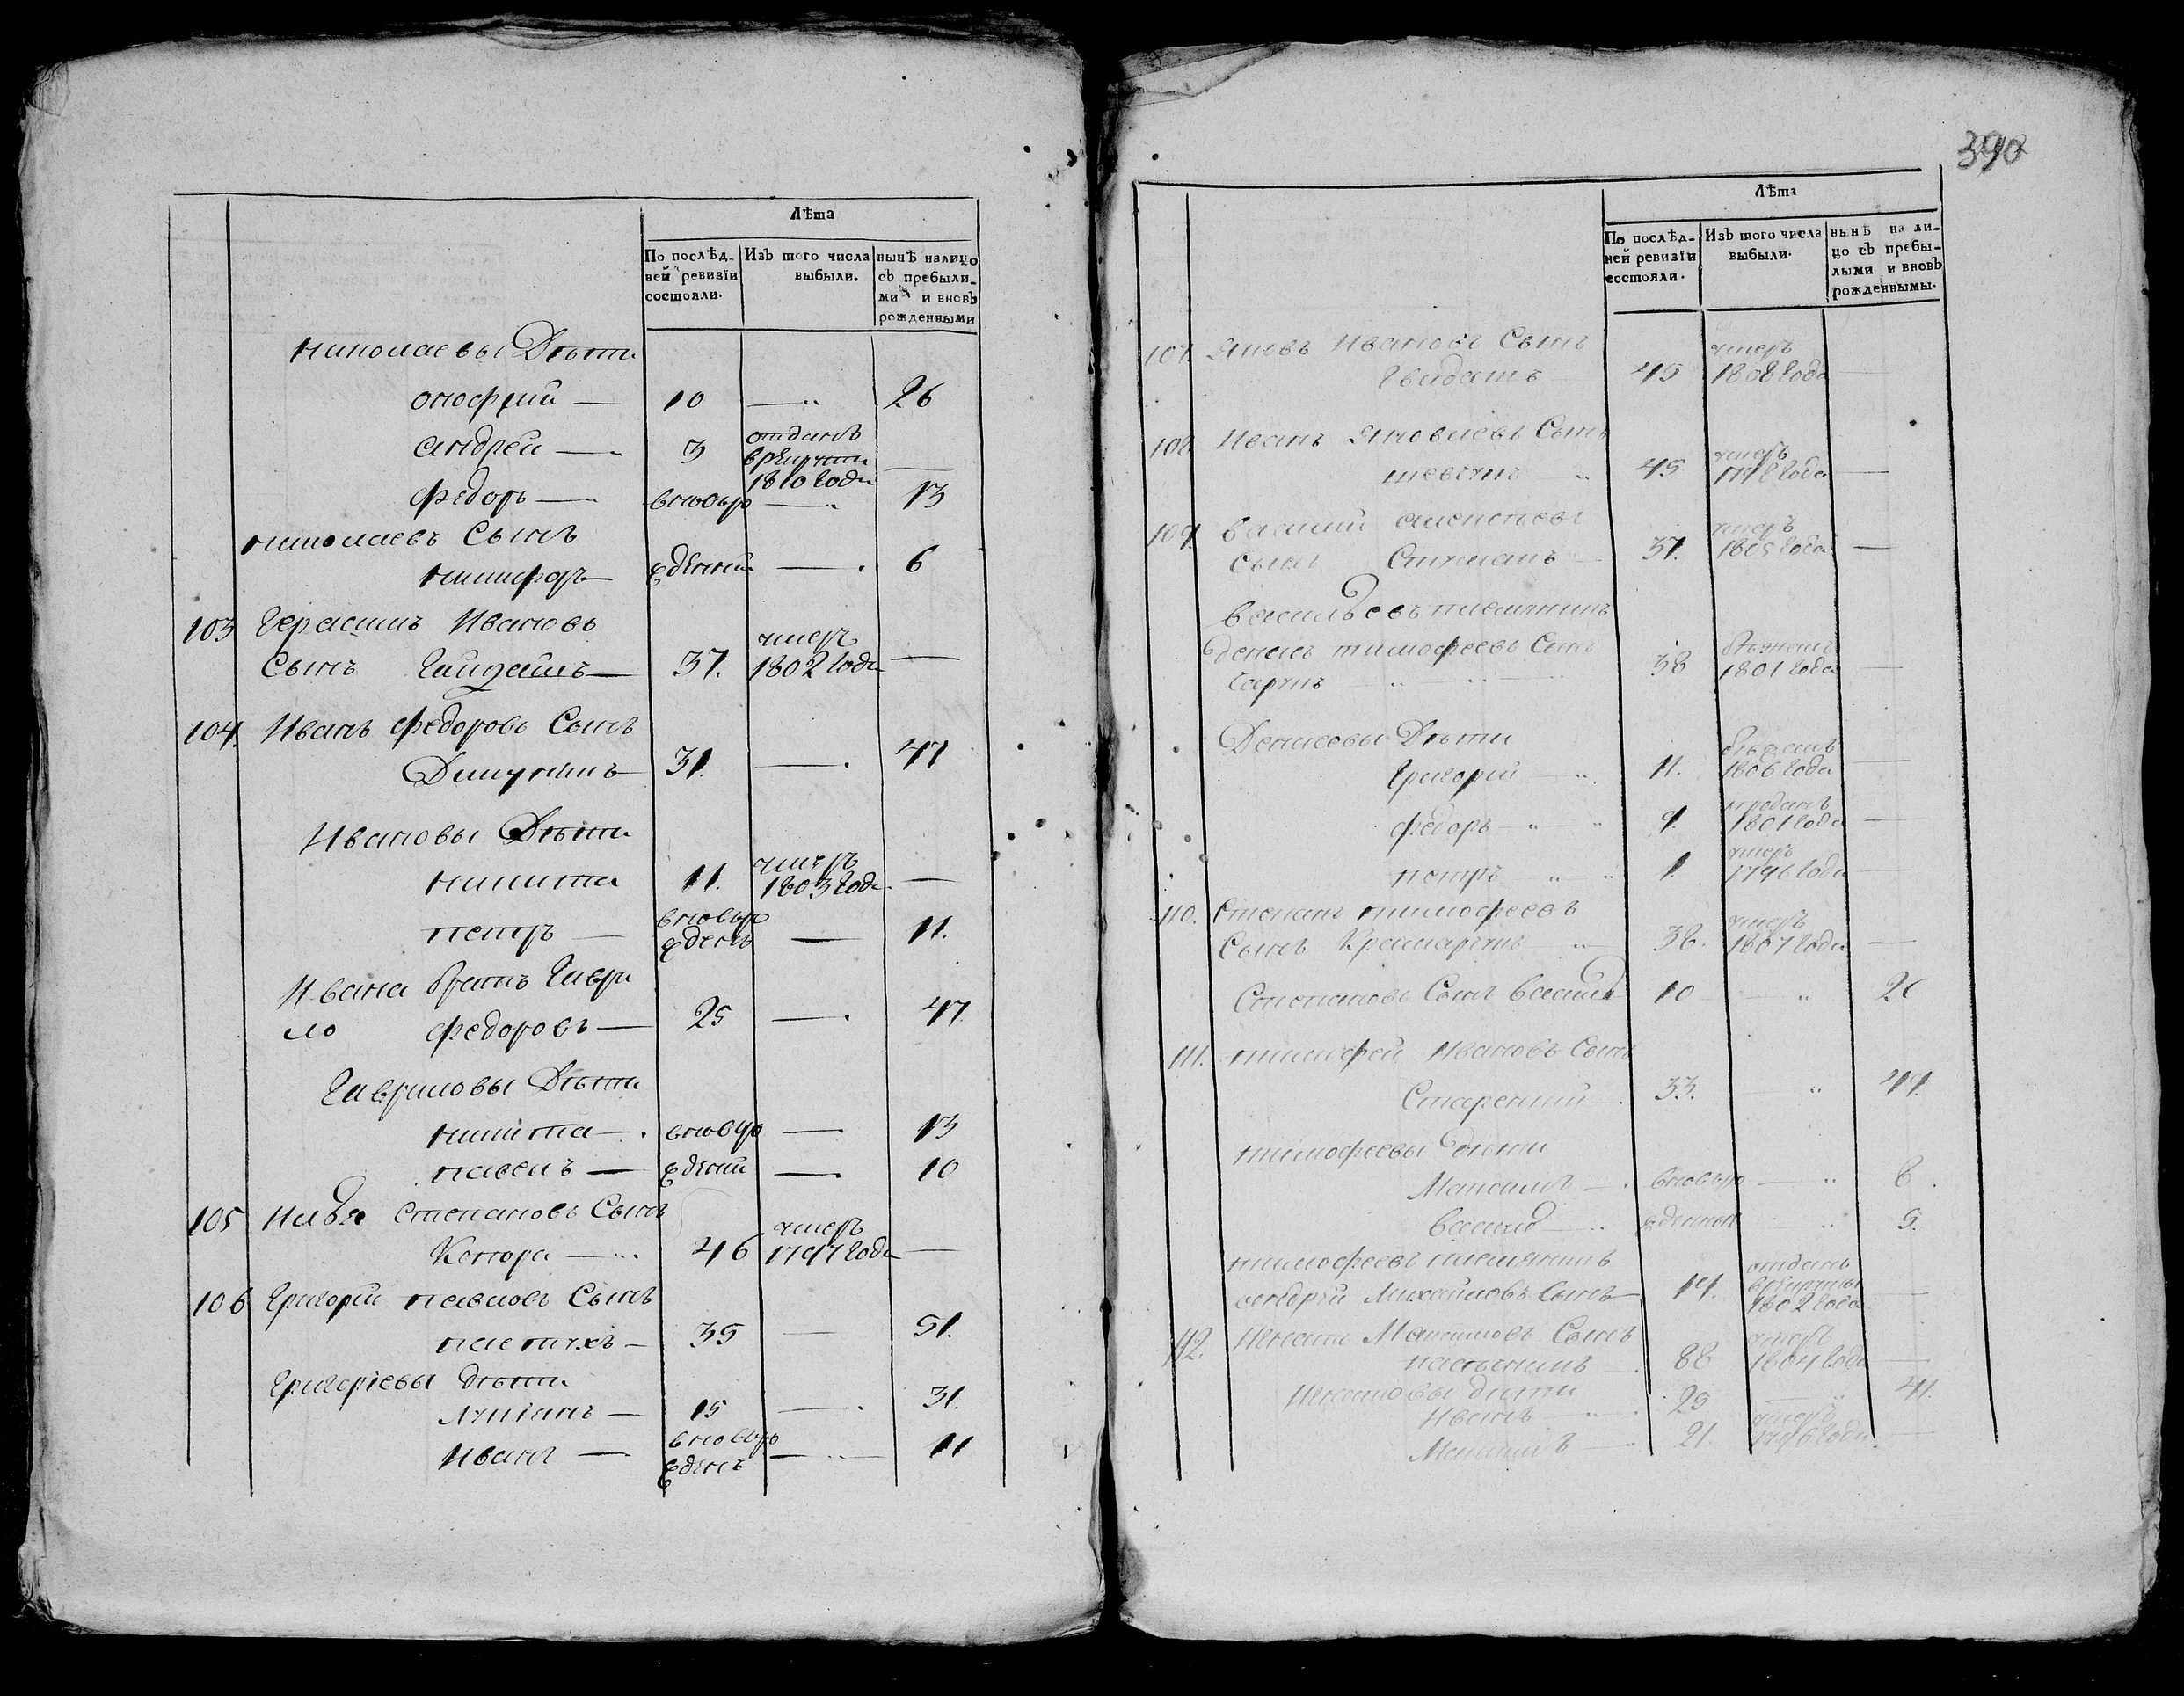 Лѣта
По послѣд-
ней ревизіи
состояли.
Изъ того числа
выбыли.
нынѣ налицо
съ пребылы-
ми и вновь
рожденными
николаевы Дѣти
онофрий — 10 — 26
андрей — 3 отданъ
в рекруты
1810 года —
федоръ — вновьро — 13
николаевъ Сынъ
никифоръ — жденный — 6
103 Герасимъ Ивановъ
Сынъ — 37. умеръ
1802 года —
104. Иванъ федоровъ Сынъ
31. — 47
Ивановы Дѣти
никита 11. умеръ
1803 года —
петръ — вновьро
жденъ — 11.
Ивана братъ Гаври
ло федоровъ — 25 — 47
Гавриловы Дѣти
никита — вновьро — 13
павелъ — ждении — 10
105 Илья степановъ Сынъ
46 умеръ
1797 года —
106 Григорій павловъ Сынъ
пастухъ — 35 — 51.
Григоріевы дѣти
лукіянъ — 15 — 31.
Иванъ — вновьро
жденъ — 11
390
Лѣта
По послѣд-
ней ревизіи
состояли.
Изъ того числа
выбыли.
нынѣ на ли-
цо съ пребы-
лыми и вновь
рожденными.
107. яковъ ивановъ Сынъ
45 умеръ
1808 года —
108 Иванъ яковлевъ Сынъ
шевчукъ 45 умеръ
года —
109. василий
сынъ 37. умеръ
1805 года —
васильевъ племянникъ
денисъ тимофеевъ Сынъ
38 бежалъ
1801 года —
Денисовы Дѣти
Григорий 11. бежалъ
1806 года —
федоръ 9.
1801 года —
петръ 1. умеръ
1796 года —
110. Степанъ тимофеевъ
Сынъ Крамаренко 38. умеръ
1807 года —
Степановъ Сынъ василий 10 — 26
111. тимофей Ивановъ Сынъ
33. — 49.
тимофеевы дѣти
Максимъ — вновьро — 8.
василий — жденные — 5.
тимофеевъ племянникъ
андрей Михайловъ Сынъ — 19. отданъ
в рекруты
1802 года —
112. Игнатъ Максимовъ Сынъ
88 умеръ
1804 года —
Игнатовы дѣти
Иванъ — 25 — 41.
Максимъ — 21. умеръ
1796 года —